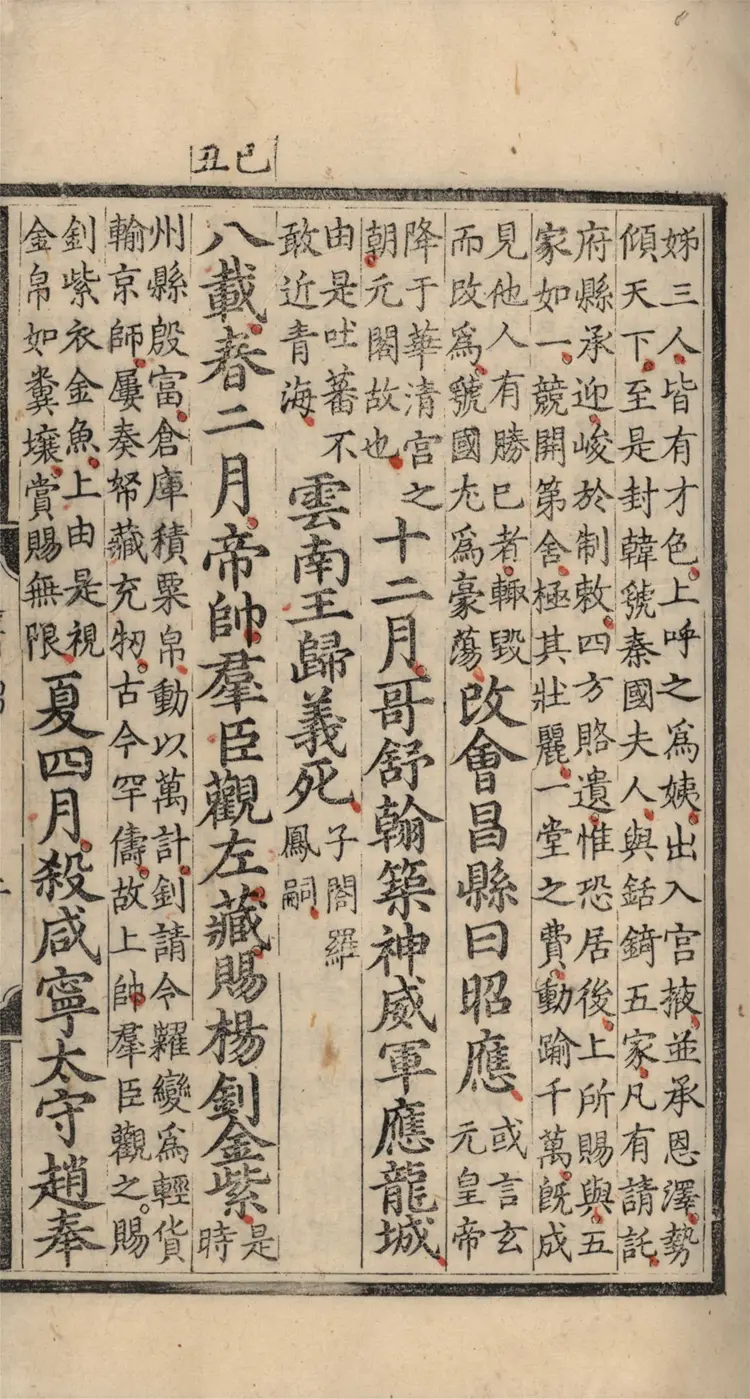 己丑
姊三人皆有才色上呼之爲姨出入宮掖並承恩澤勢
傾天下至是封韓虢秦國夫人與銛錡五家凡有請託
府縣承迎峻於制敕四方賂遺惟恐居後上所賜與五
家如一競開第舍極其壯麗一堂之費動踰千萬既成
見他人有勝已者輒毀
而改爲虢國尤爲豪蕩
改會昌縣曰昭應
或言玄
元皇帝
降于華清宮之
朝元閣故也
十二月哥舒翰築神威軍應龍城
由是吐蕃不
敢近青海
雲南王歸義死
子閤羅
鳳嗣
八載春二月帝帥羣臣觀左藏賜楊釗金紫
是
時
州縣殷富倉庫積粟帛動以萬計釗請令糶變爲輕貨
輸京師屢奏帑藏充牣古今罕儔故上帥羣臣觀之賜
釗紫衣金魚上由是視
金帛如糞壤賞賜無限
夏四月殺咸寧太守趙奉